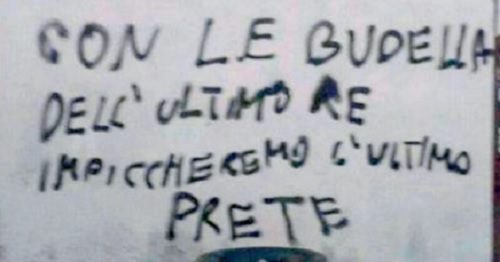 CON LE BUDELLA
DELL'ULTIMO RE
IMPICCHEREMO L'ULTIMO
PRETE